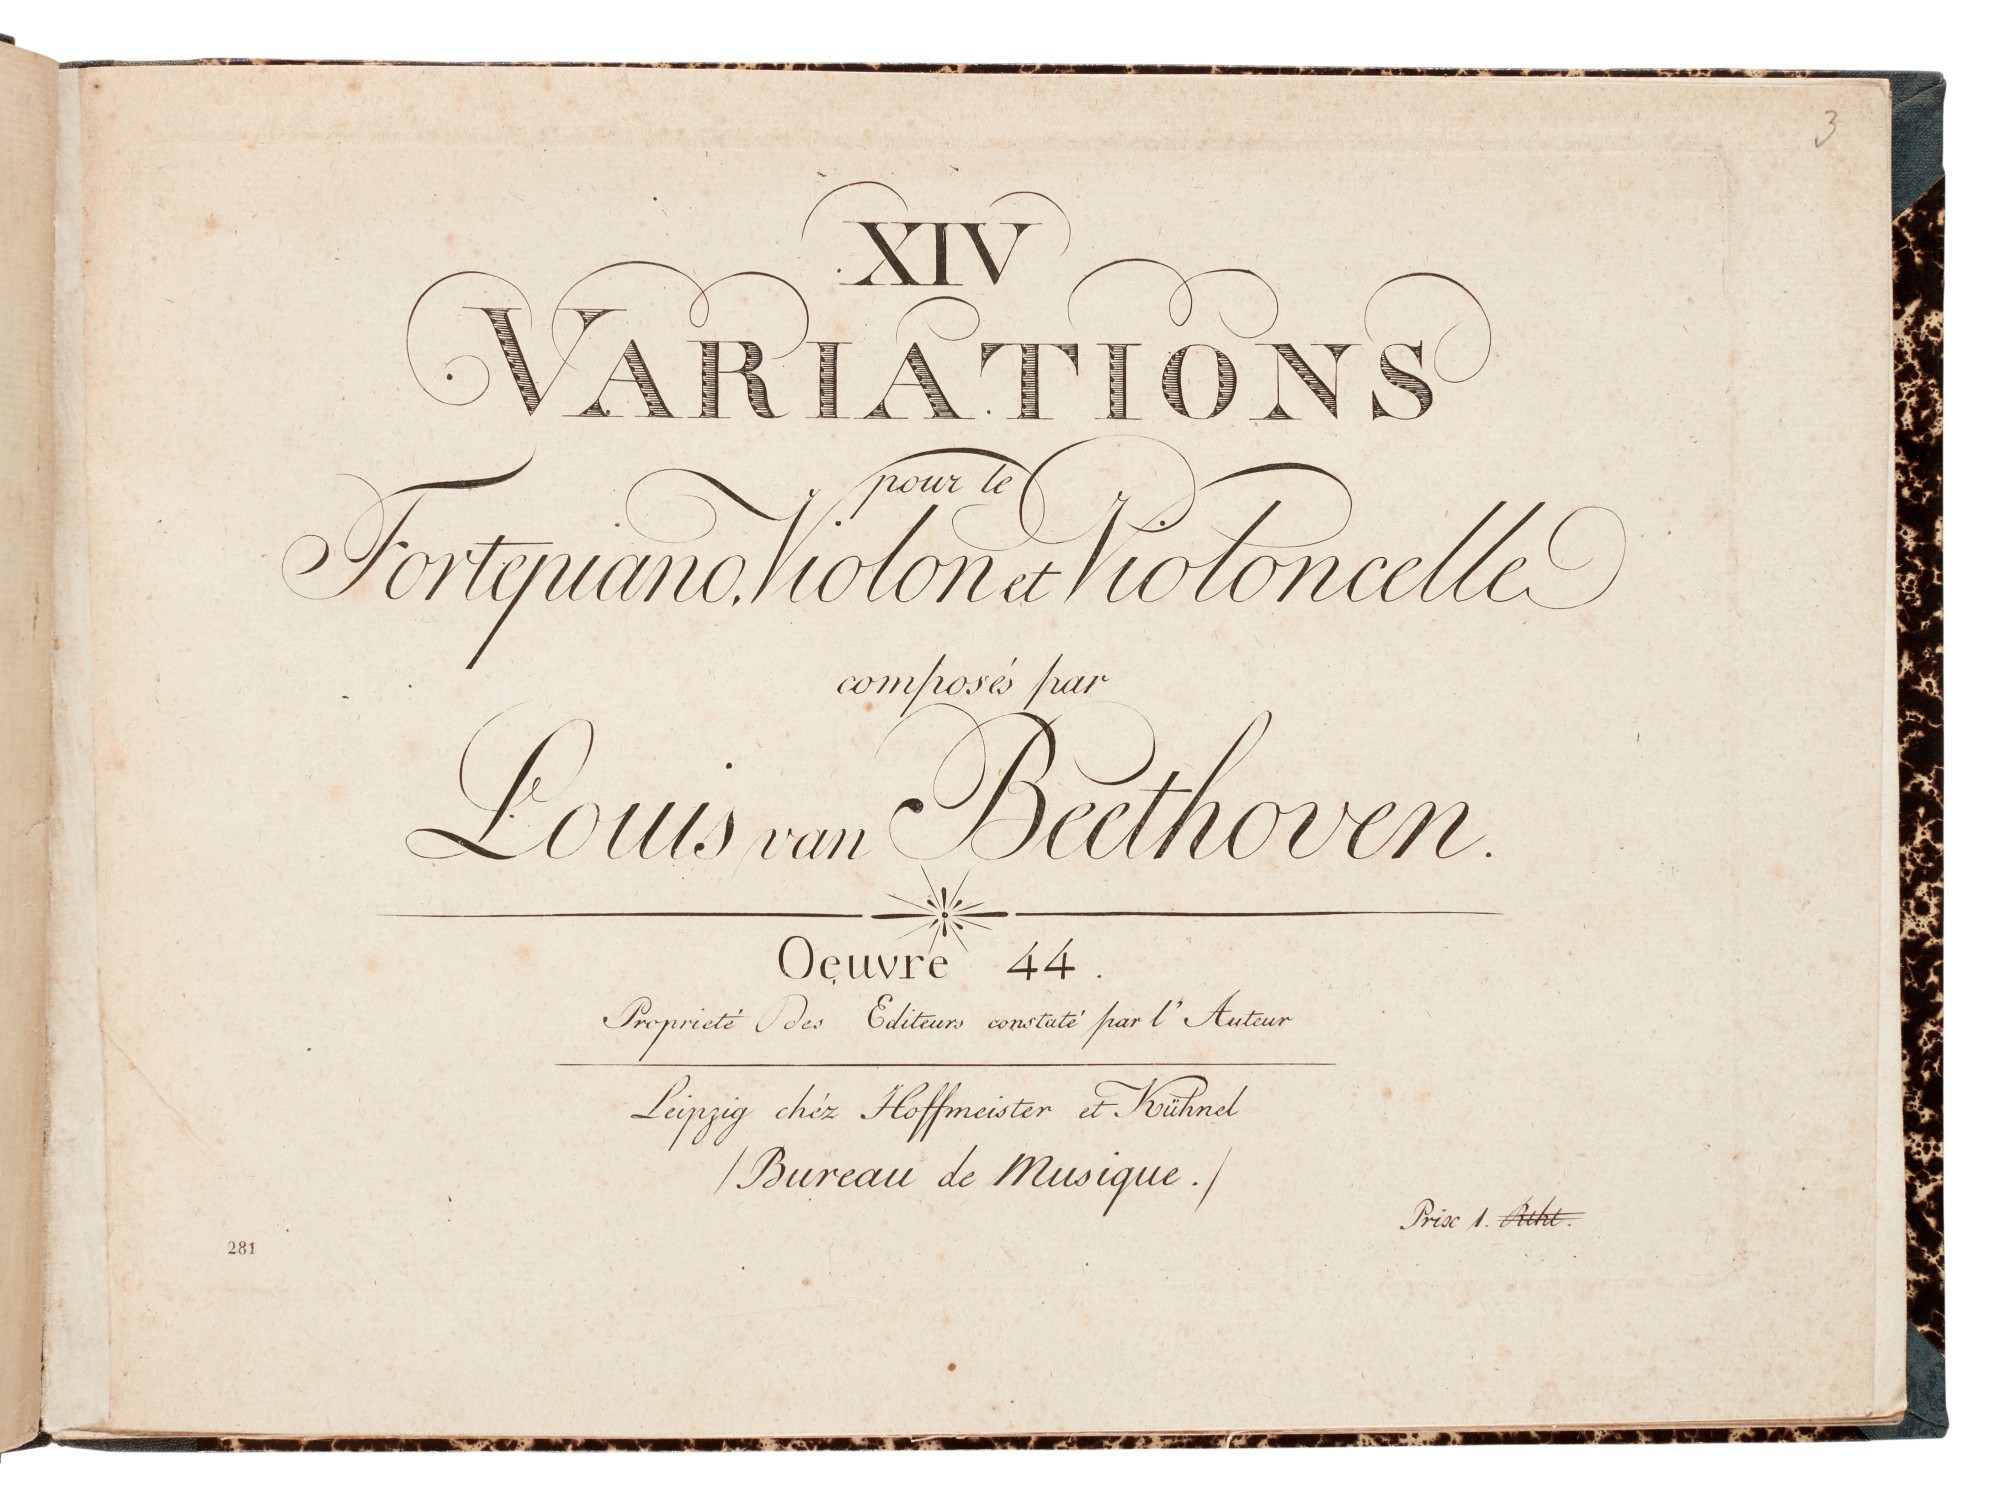 3
XIV
VARIATIONS
pour le
Fortepiano, Violon et Violoncelle
composés par
Louis van Beethoven.
Oeuvre 44.
Proprieté des Editeurs constaté par l'Auteur
Leipzig chéz Hoffmeister et Kühnel
/Bureau de Musique./
Prix 1.
281